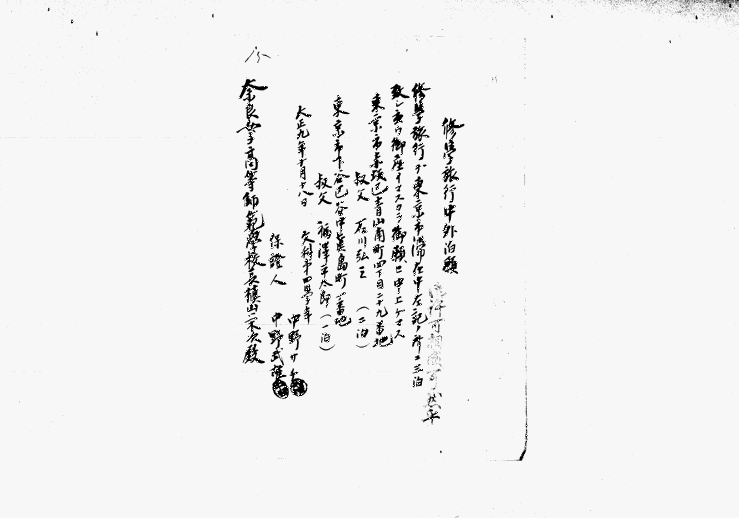 修學旅行中外泊願
許可相成可然乎
修學旅行デ東京市滞在中左記ノ所ニ三泊
致シ度ウ御座イマスカラ御願ヒ申上ゲマス
東京市赤坂區青山南町四丁目二十九番地
叔父 石川弘三 (二泊)
東京市下谷區谷中眞島町一番地
叔父 福澤平太郎 (一泊)
大正九年十月十八日
文科第四學年
中野サト
保證人 中野武雄
奈良女子高等師範學校長槇山榮次殿